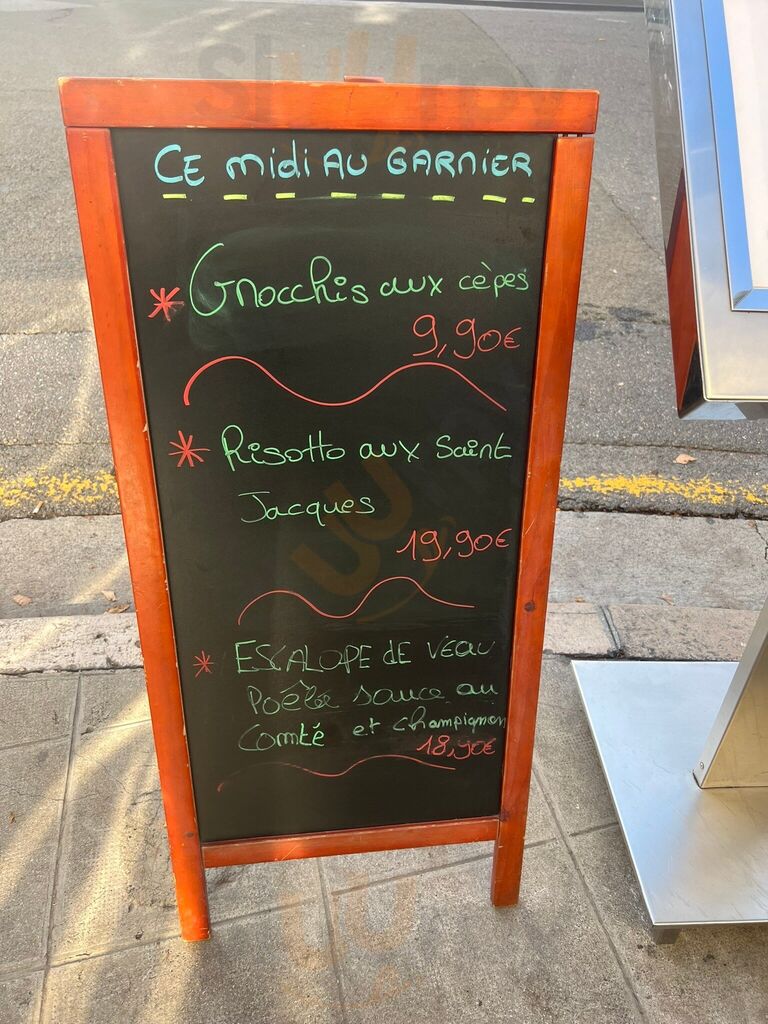 CE midi AU GARNIER
* Gnocchis aux cèpes
9,90€
* Risotto aux Saint
Jacques
19,90€
* ESCALOPE DE VEAU
Poêlée sauce au
Comté et champignon
18,90€